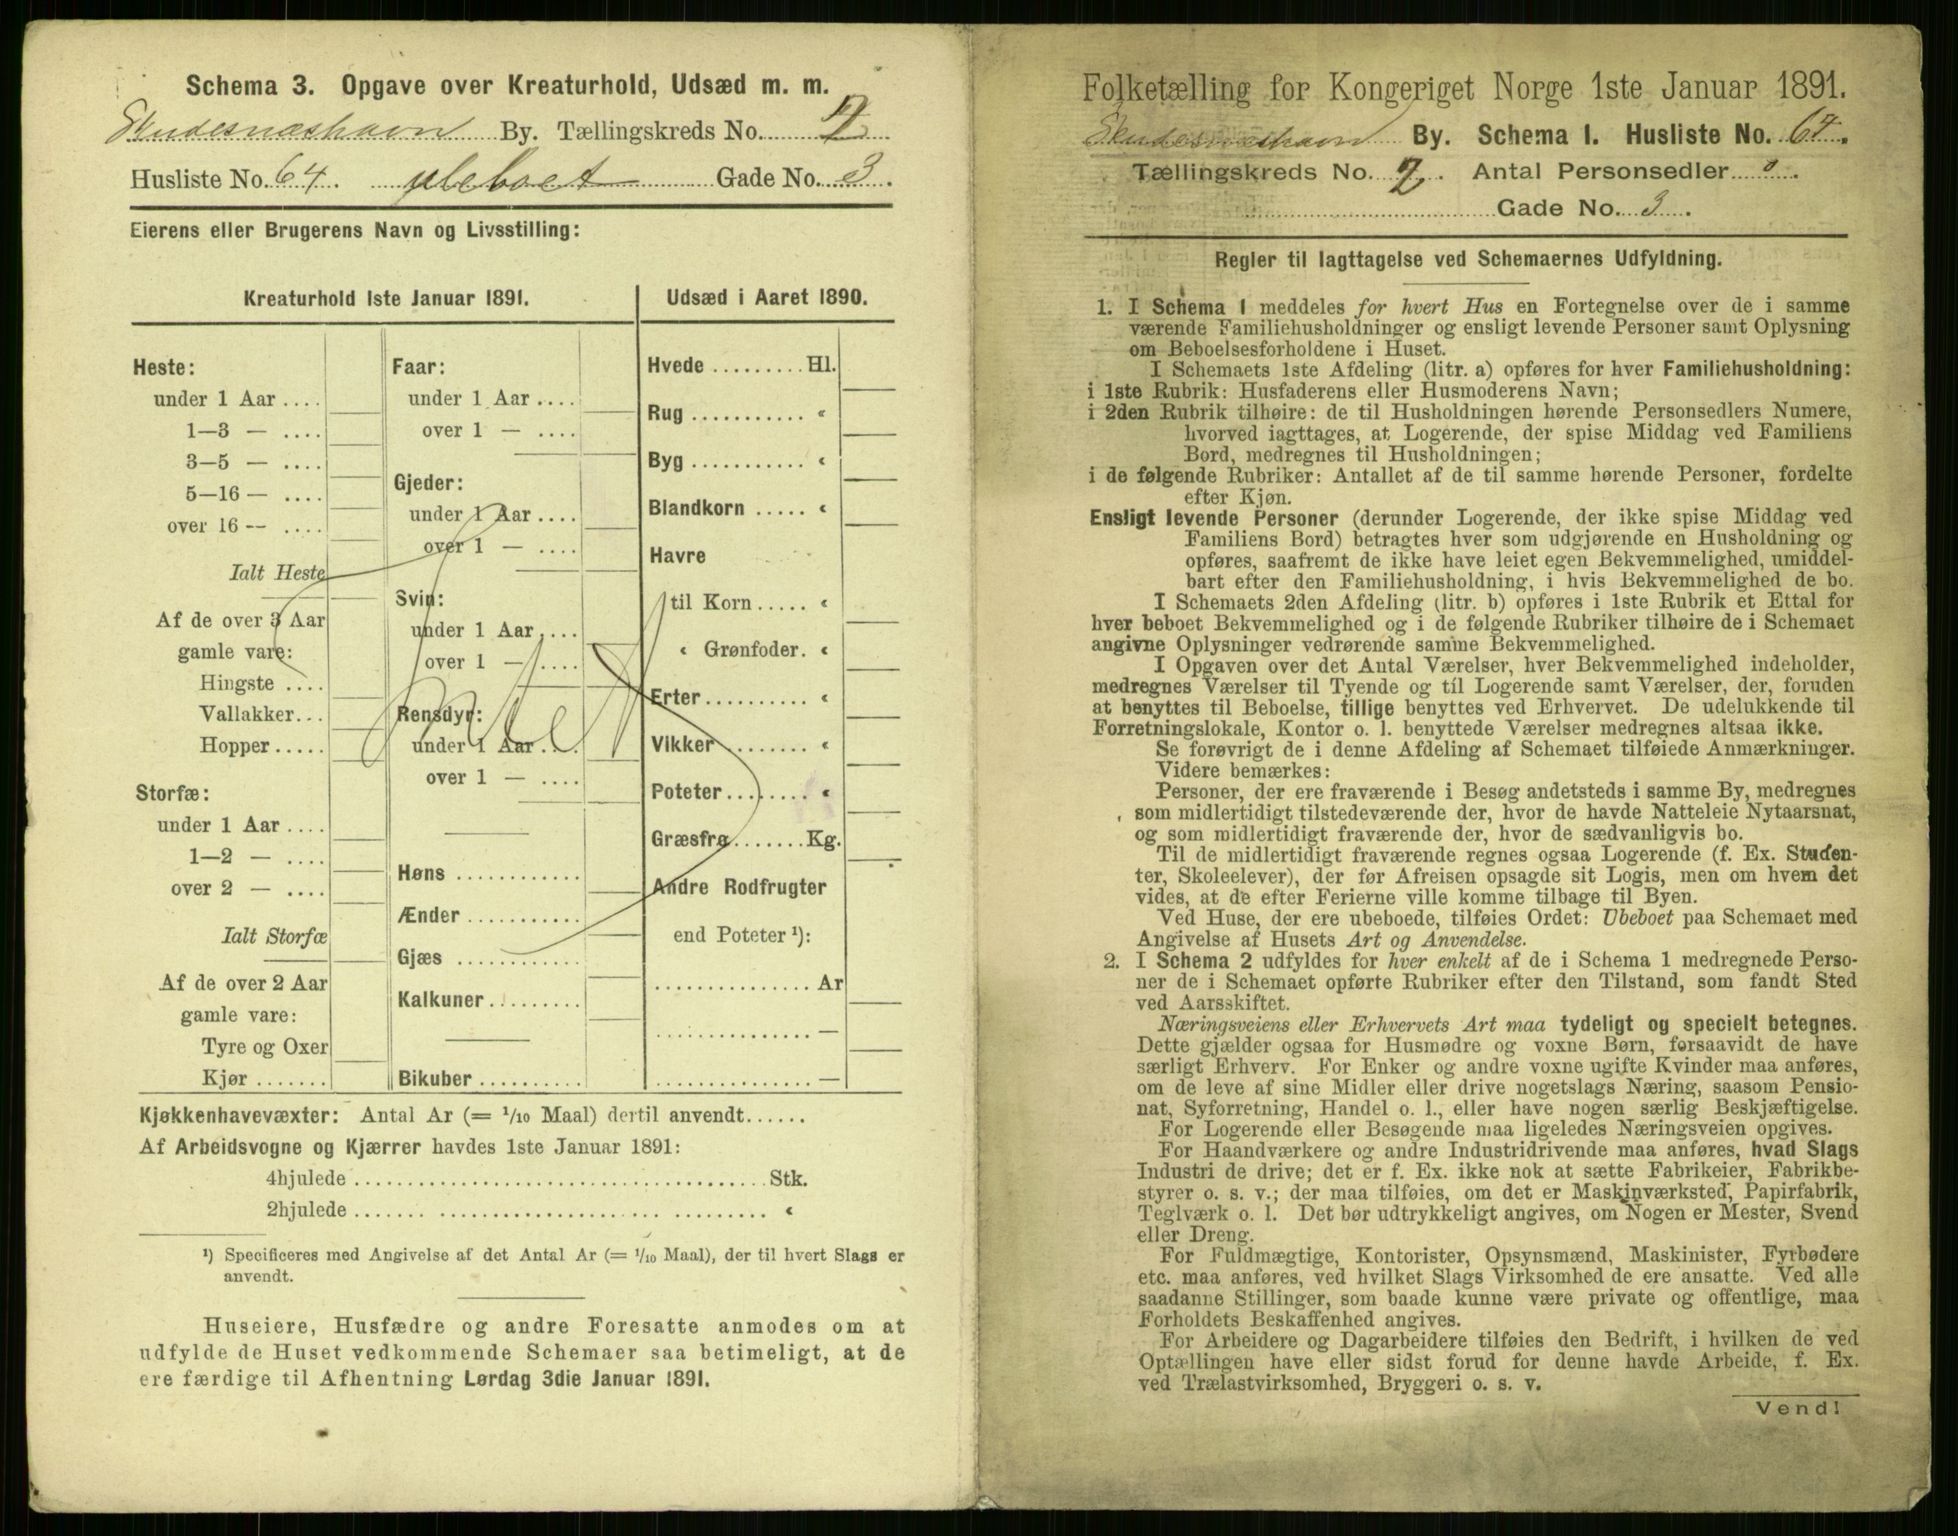 Schema 3. Opgave over Kreaturhold, Udsæd m. m.
Skudesnæshavn By. Tællingskreds No. 2
Husliste No. 64. ubeboet Gade No. 3.
Eierens eller Brugerens Navn og Livsstilling:
Kreaturhold 1ste Januar 1891.
Heste:
under 1 Aar ....
1—3 — ....
3—5 — ....
5—16 — ....
over 16 — ....
Ialt Heste
Af de over 3 Aar
gamle vare:
Hingste ....
Vallakker...
Hopper .....
Storfæ:
under 1 Aar ....
1—2 — ....
over 2 — ....
Ialt Storfæ
Af de over 2 Aar
gamle vare:
Tyre og Oxer
Kjør .......
Faar:
under 1 Aar ....
over 1 — ....
Gjeder:
under 1 Aar ....
over 1 — ....
Svin:
under 1 Aar ....
over 1 — ....
Rensdyr:
under 1 Aar ....
over 1 — ....
Høns ............
Ænder ...........
Gjæs ............
Kalkuner .........
Bikuber ..........
Intet
Udsæd i Aaret 1890.
Hvede ......... Hl.
Rug ........... «
Byg ........... «
Blandkorn ..... «
Havre
til Korn ..... «
« Grønfoder. «
Erter .......... «
Vikker ........ «
Poteter ........ «
Græsfrø ....... Kg.
Andre Rodfrugter
end Poteter ¹):
............... Ar
............... —
............... —
Kjøkkenhavevæxter: Antal Ar (= 1/10 Maal) dertil anvendt......
Af Arbeidsvogne og Kjærrer havdes 1ste Januar 1891:
4hjulede ....................................... Stk.
2hjulede ....................................... «
¹) Specificeres med Angivelse af det Antal Ar (= 1/10 Maal), der til hvert Slags er
anvendt.
Huseiere, Husfædre og andre Foresatte anmodes om at
udfylde de Huset vedkommende Schemaer saa betimeligt, at de
ere færdige til Afhentning Lørdag 3die Januar 1891.
Folketælling for Kongeriget Norge 1ste Januar 1891.
Skudesnæshavn By. Schema 1. Husliste No. 64.
Tællingskreds No. 2. Antal Personsedler 0.
Gade No. 3.
Regler til Iagttagelse ved Schemaernes Udfyldning.
1. I Schema 1 meddeles for hvert Hus en Fortegnelse over de i samme
værende Familiehusholdninger og ensligt levende Personer samt Oplysning
om Beboelsesforholdene i Huset.
I Schemaets 1ste Afdeling (litr. a) opføres for hver Familiehusholdning:
i 1ste Rubrik: Husfaderens eller Husmoderens Navn;
i 2den Rubrik tilhøire: de til Husholdningen hørende Personsedlers Numere,
hvorved iagttages, at Logerende, der spise Middag ved Familiens
Bord, medregnes til Husholdningen;
i de følgende Rubriker: Antallet af de til samme hørende Personer, fordelte
efter Kjøn.
Ensligt levende Personer (derunder Logerende, der ikke spise Middag ved
Familiens Bord) betragtes hver som udgjørende en Husholdning og
opføres, saafremt de ikke have leiet egen Bekvemmelighed, umiddel-
bart efter den Familiehusholdning, i hvis Bekvemmelighed de bo.
I Schemaets 2den Afdeling (litr. b) opføres i 1ste Rubrik et Ettal for
hver beboet Bekvemmelighed og i de følgende Rubriker tilhøire de i Schemaet
angivne Oplysninger vedrørende samme Bekvemmelighed.
I Opgaven over det Antal Værelser, hver Bekvemmelighed indeholder,
medregnes Værelser til Tyende og til Logerende samt Værelser, der, foruden
at benyttes til Beboelse, tillige benyttes ved Erhvervet. De udelukkende til
Forretningslokale, Kontor o. l. benyttede Værelser medregnes altsaa ikke.
Se forøvrigt de i denne Afdeling af Schemaet tilføiede Anmærkninger.
Videre bemærkes:
Personer, der ere fraværende i Besøg andetsteds i samme By, medregnes
som midlertidigt tilstedeværende der, hvor de havde Natteleie Nytaarsnat,
og som midlertidigt fraværende der, hvor de sædvanligvis bo.
Til de midlertidigt fraværende regnes ogsaa Logerende (f. Ex. Studen-
ter, Skoleelever), der før Afreisen opsagde sit Logis, men om hvem det
vides, at de efter Ferierne ville komme tilbage til Byen.
Ved Huse, der ere ubeboede, tilføies Ordet: Ubeboet paa Schemaet med
Angivelse af Husets Art og Anvendelse.
2. I Schema 2 udfyldes for hver enkelt af de i Schema 1 medregnede Perso-
ner de i Schemaet opførte Rubriker efter den Tilstand, som fandt Sted
ved Aarsskiftet.
Næringsveiens eller Erhvervets Art maa tydeligt og specielt betegnes.
Dette gjælder ogsaa for Husmødre og voxne Børn, forsaavidt de have
særligt Erhverv. For Enker og andre voxne ugifte Kvinder maa anføres,
om de leve af sine Midler eller drive nogetslags Næring, saasom Pensio-
nat, Syforretning, Handel o. l., eller have nogen særlig Beskjæftigelse.
For Logerende eller Besøgende maa ligeledes Næringsveien opgives.
For Haandværkere og andre Industridrivende maa anføres, hvad Slags
Industri de drive; det er f. Ex. ikke nok at sætte Fabrikeier, Fabrikbe-
styrer o. s. v.; der maa tilføies, om det er Maskinværksted, Papirfabrik,
Teglværk o. l. Det bør udtrykkeligt angives, om Nogen er Mester, Svend
eller Dreng.
For Fuldmægtige, Kontorister, Opsynsmænd, Maskinister, Fyrbødere
etc. maa anføres, ved hvilket Slags Virksomhed de ere ansatte. Ved alle
saadanne Stillinger, som baade kunne være private og offentlige, maa
Forholdets Beskaffenhed angives.
For Arbeidere og Dagarbeidere tilføies den Bedrift, i hvilken de ved
Optællingen have eller sidst forud for denne havde Arbeide, f. Ex.
ved Trælastvirksomhed, Bryggeri o. s. v.
Vend!